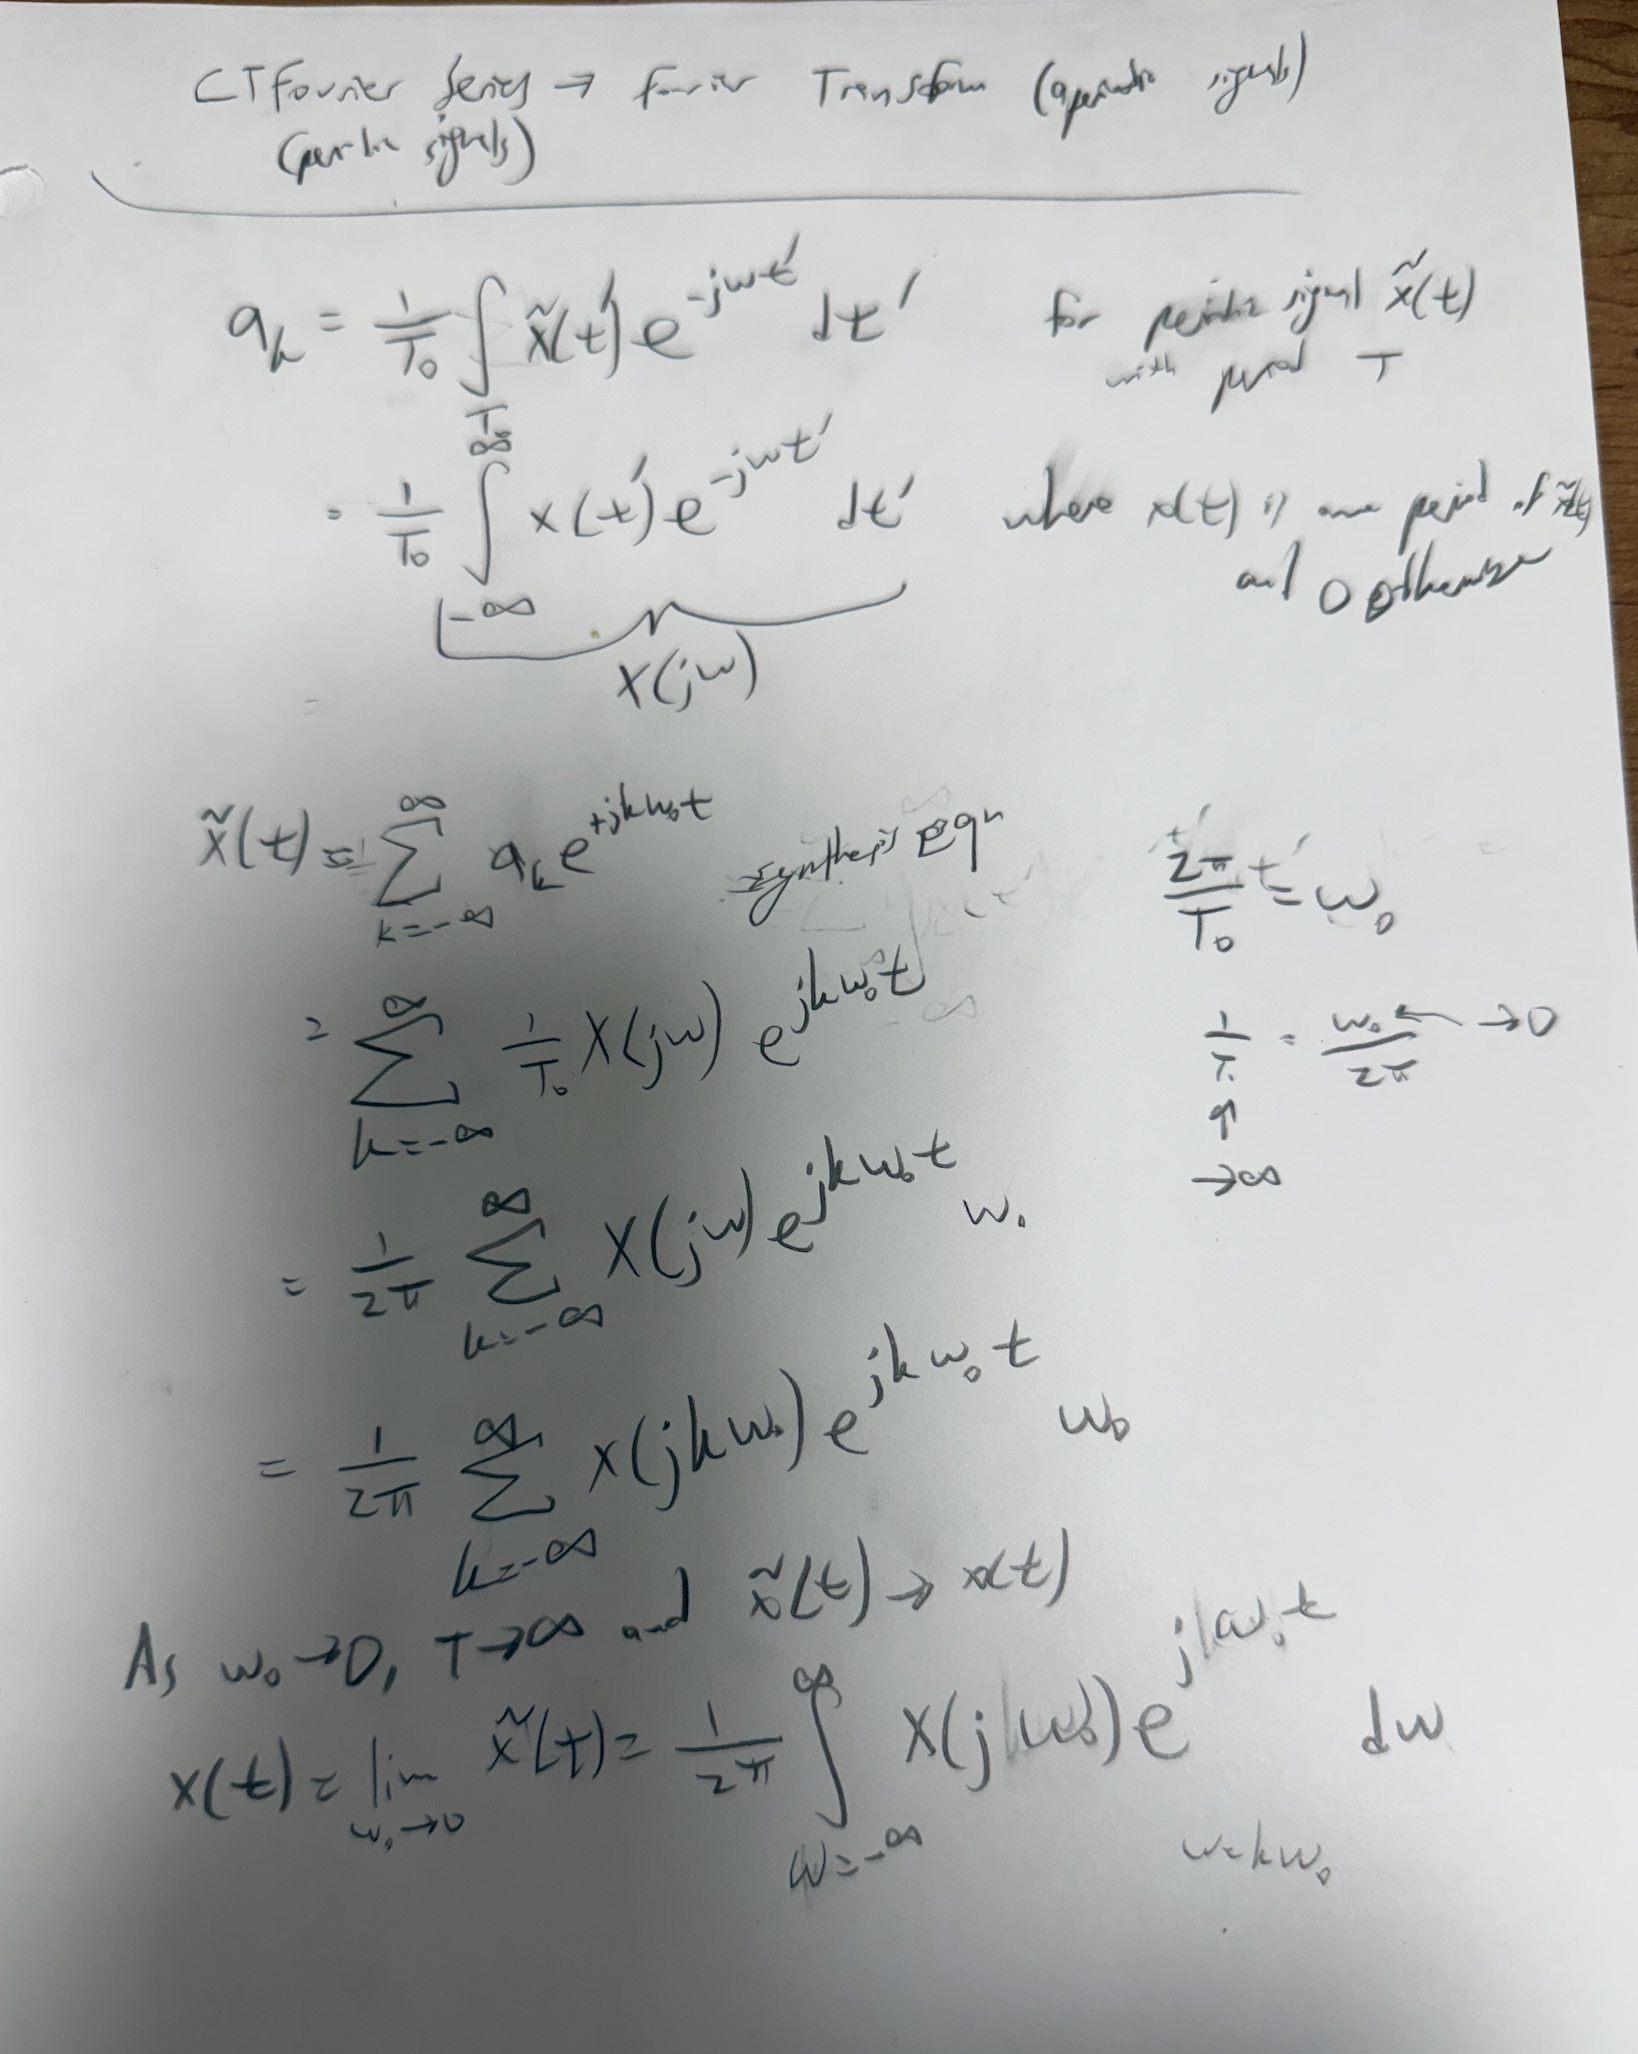 CT Fourier Series → Fourier Transform (aperiodic signals)
(periodic signals)
a_k = 1/T₀ ∫_T₀ x̃(t') e^{-jωt'} dt' for periodic signal x̃(t)
with period T
= 1/T₀ ∫_{-∞}^{∞} x(t') e^{-jωt'} dt' where x(t) is one period of x̃(t)
and 0 otherwise
X(jω)
x̃(t) = ∑_{k=-∞}^{∞} a_k e^{+jkω₀t} synthesis eqn 2π/T₀ = ω₀
= ∑_{k=-∞}^{∞} 1/T₀ X(jω) e^{jkω₀t} 1/T₀ = ω₀/2π ← →0
↑
→∞
= 1/2π ∑_{k=-∞}^{∞} X(jω) e^{jkω₀t} ω₀
= 1/2π ∑_{k=-∞}^{∞} X(jkω₀) e^{jkω₀t} ω₀
As ω₀→0, T→∞ and x̃(t) → x(t)
x(t) = lim_{ω₀→0} x̃(t) = 1/2π ∫_{ω=-∞}^{∞} X(jω) e^{jωt} dω
ω=kω₀